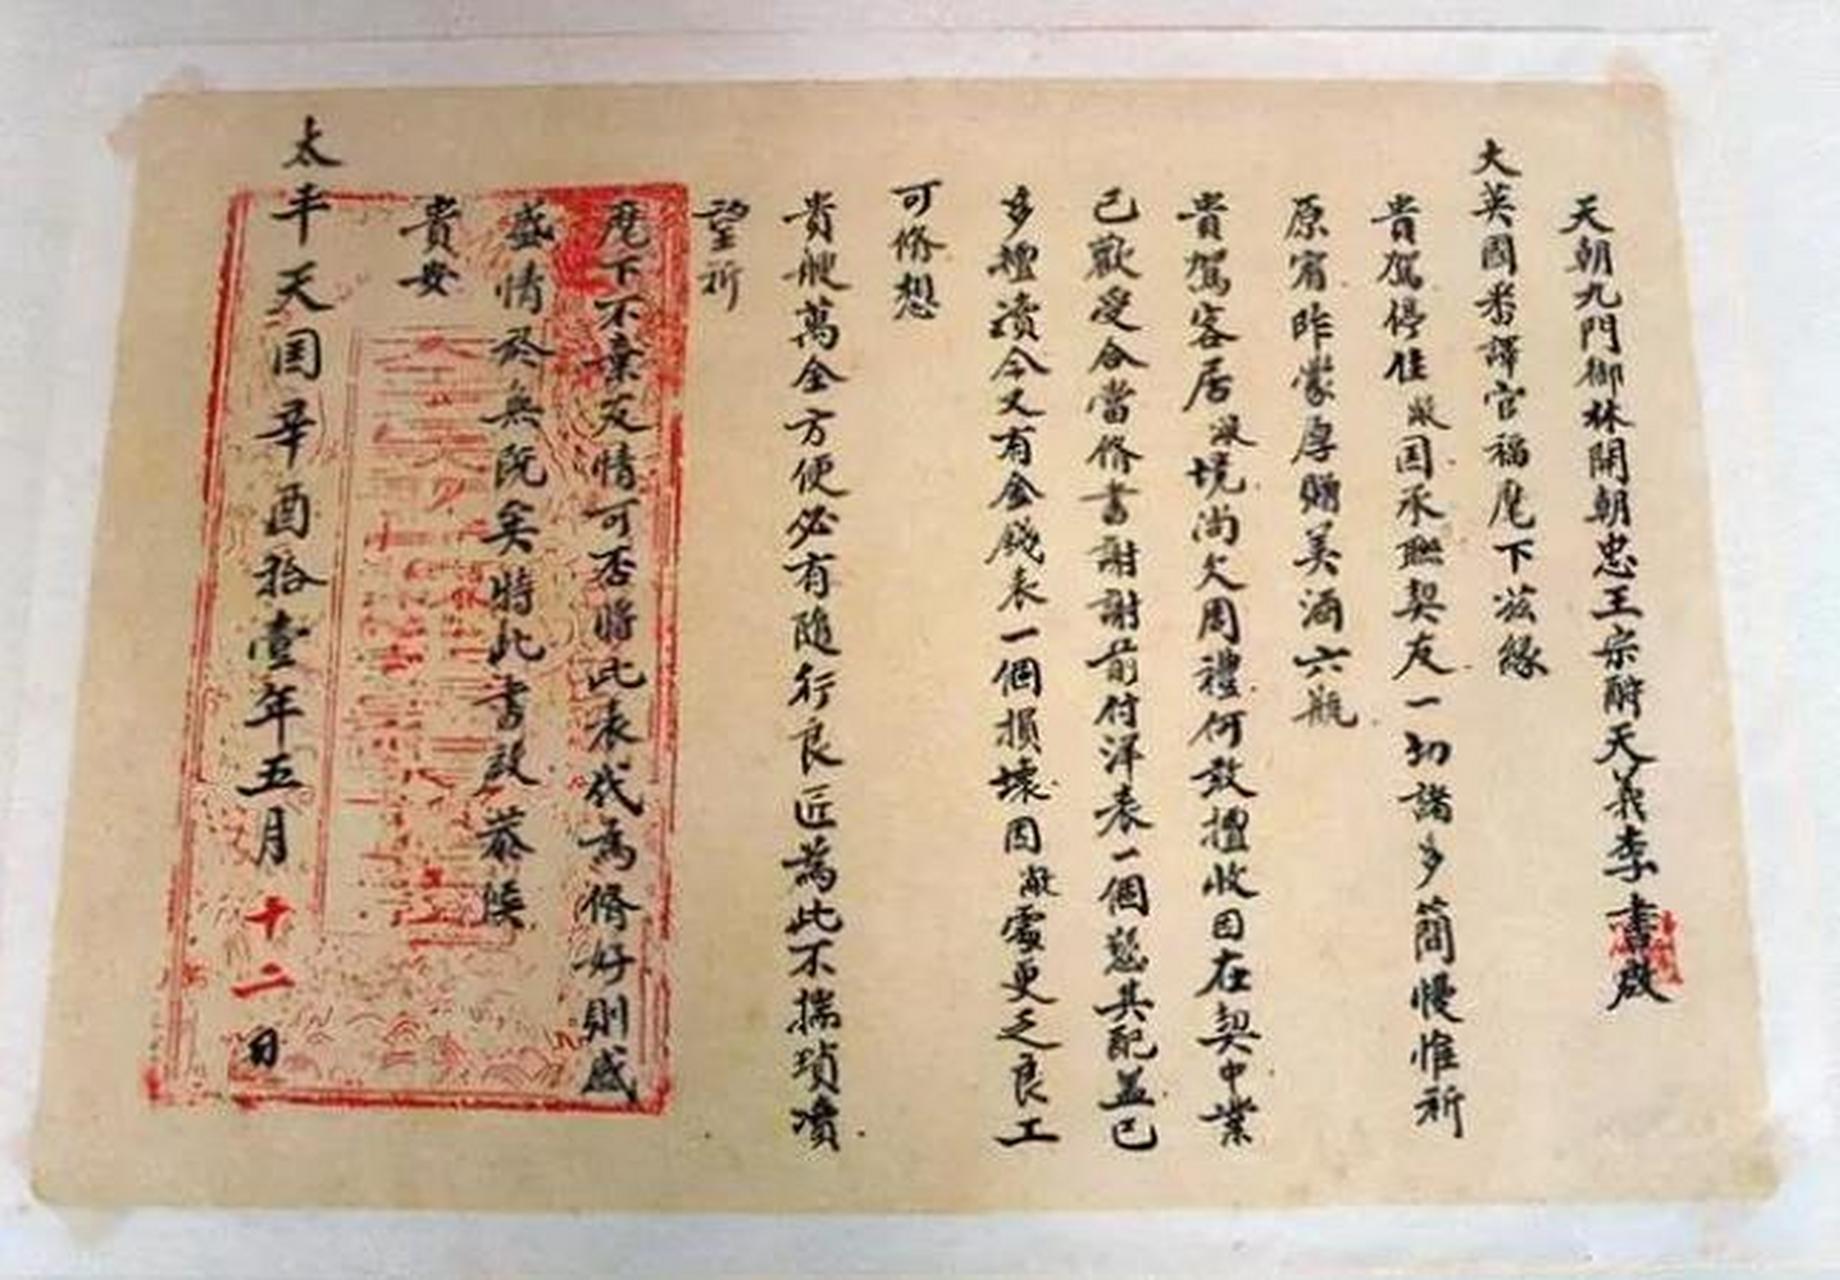 天朝九門御林開朝忠王宗酧天義李書啟
大英國番譯官福麾下茲緣
貴駕停住敝囯承聯契友一切諸多簡慢惟祈
原宥昨蒙厚贈美酒六瓶
貴駕客居敝境尚欠周禮何敢擅收因在契中業
已歡受合當修書謝謝前付洋表一個懇其配蓋已
多擅瀆今又有金錢表一個損壞因敝處更乏良工
可脩想
貴艘萬全方便必有隨行良匠為此不揣瑣瀆
望祈
麾下不棄友情可否將此表代為脩好則感
盛情於無既矣特此書啟恭候
貴安
太平天囯辛酉拾壹年五月十二日